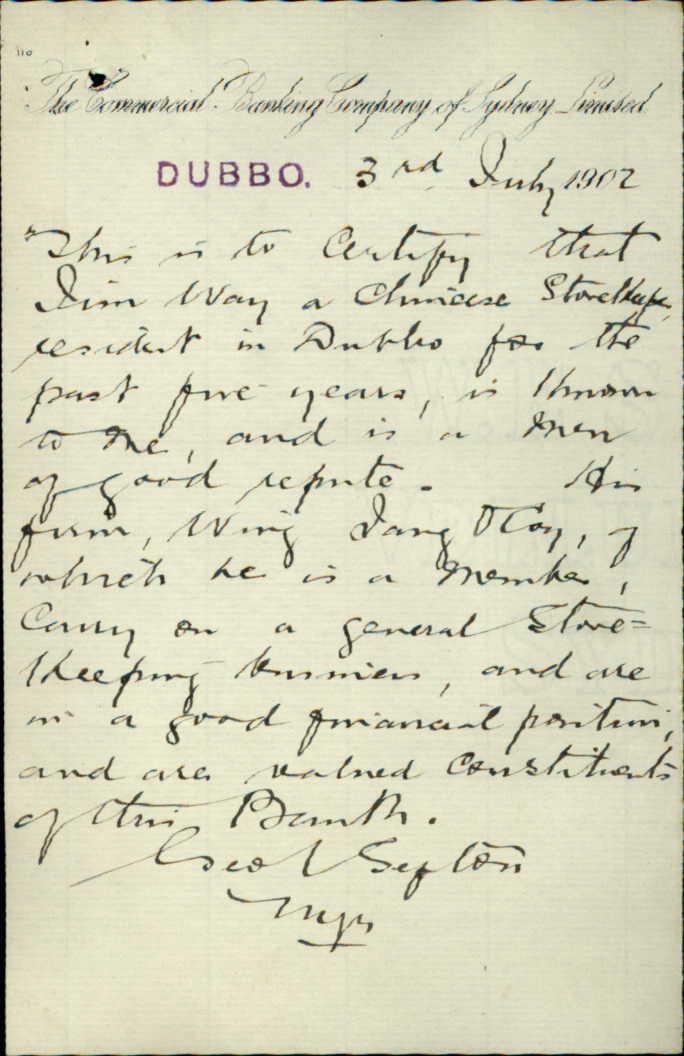 110
The Commercial Banking Company of Sydney Limited
DUBBO. 3rd July 1902
This is to Certify that
Way a Chinese Storekeeper,
resident in Dubbo for the
past five years, is known
to me, and is a man
of good repute. His
firm, Wing, of
which he is a member,
Carry on a general Store=
Keeping business, and are
in a good financial position,
and are valued Constituents
of this Bank.
Geo Sefton
Mgr